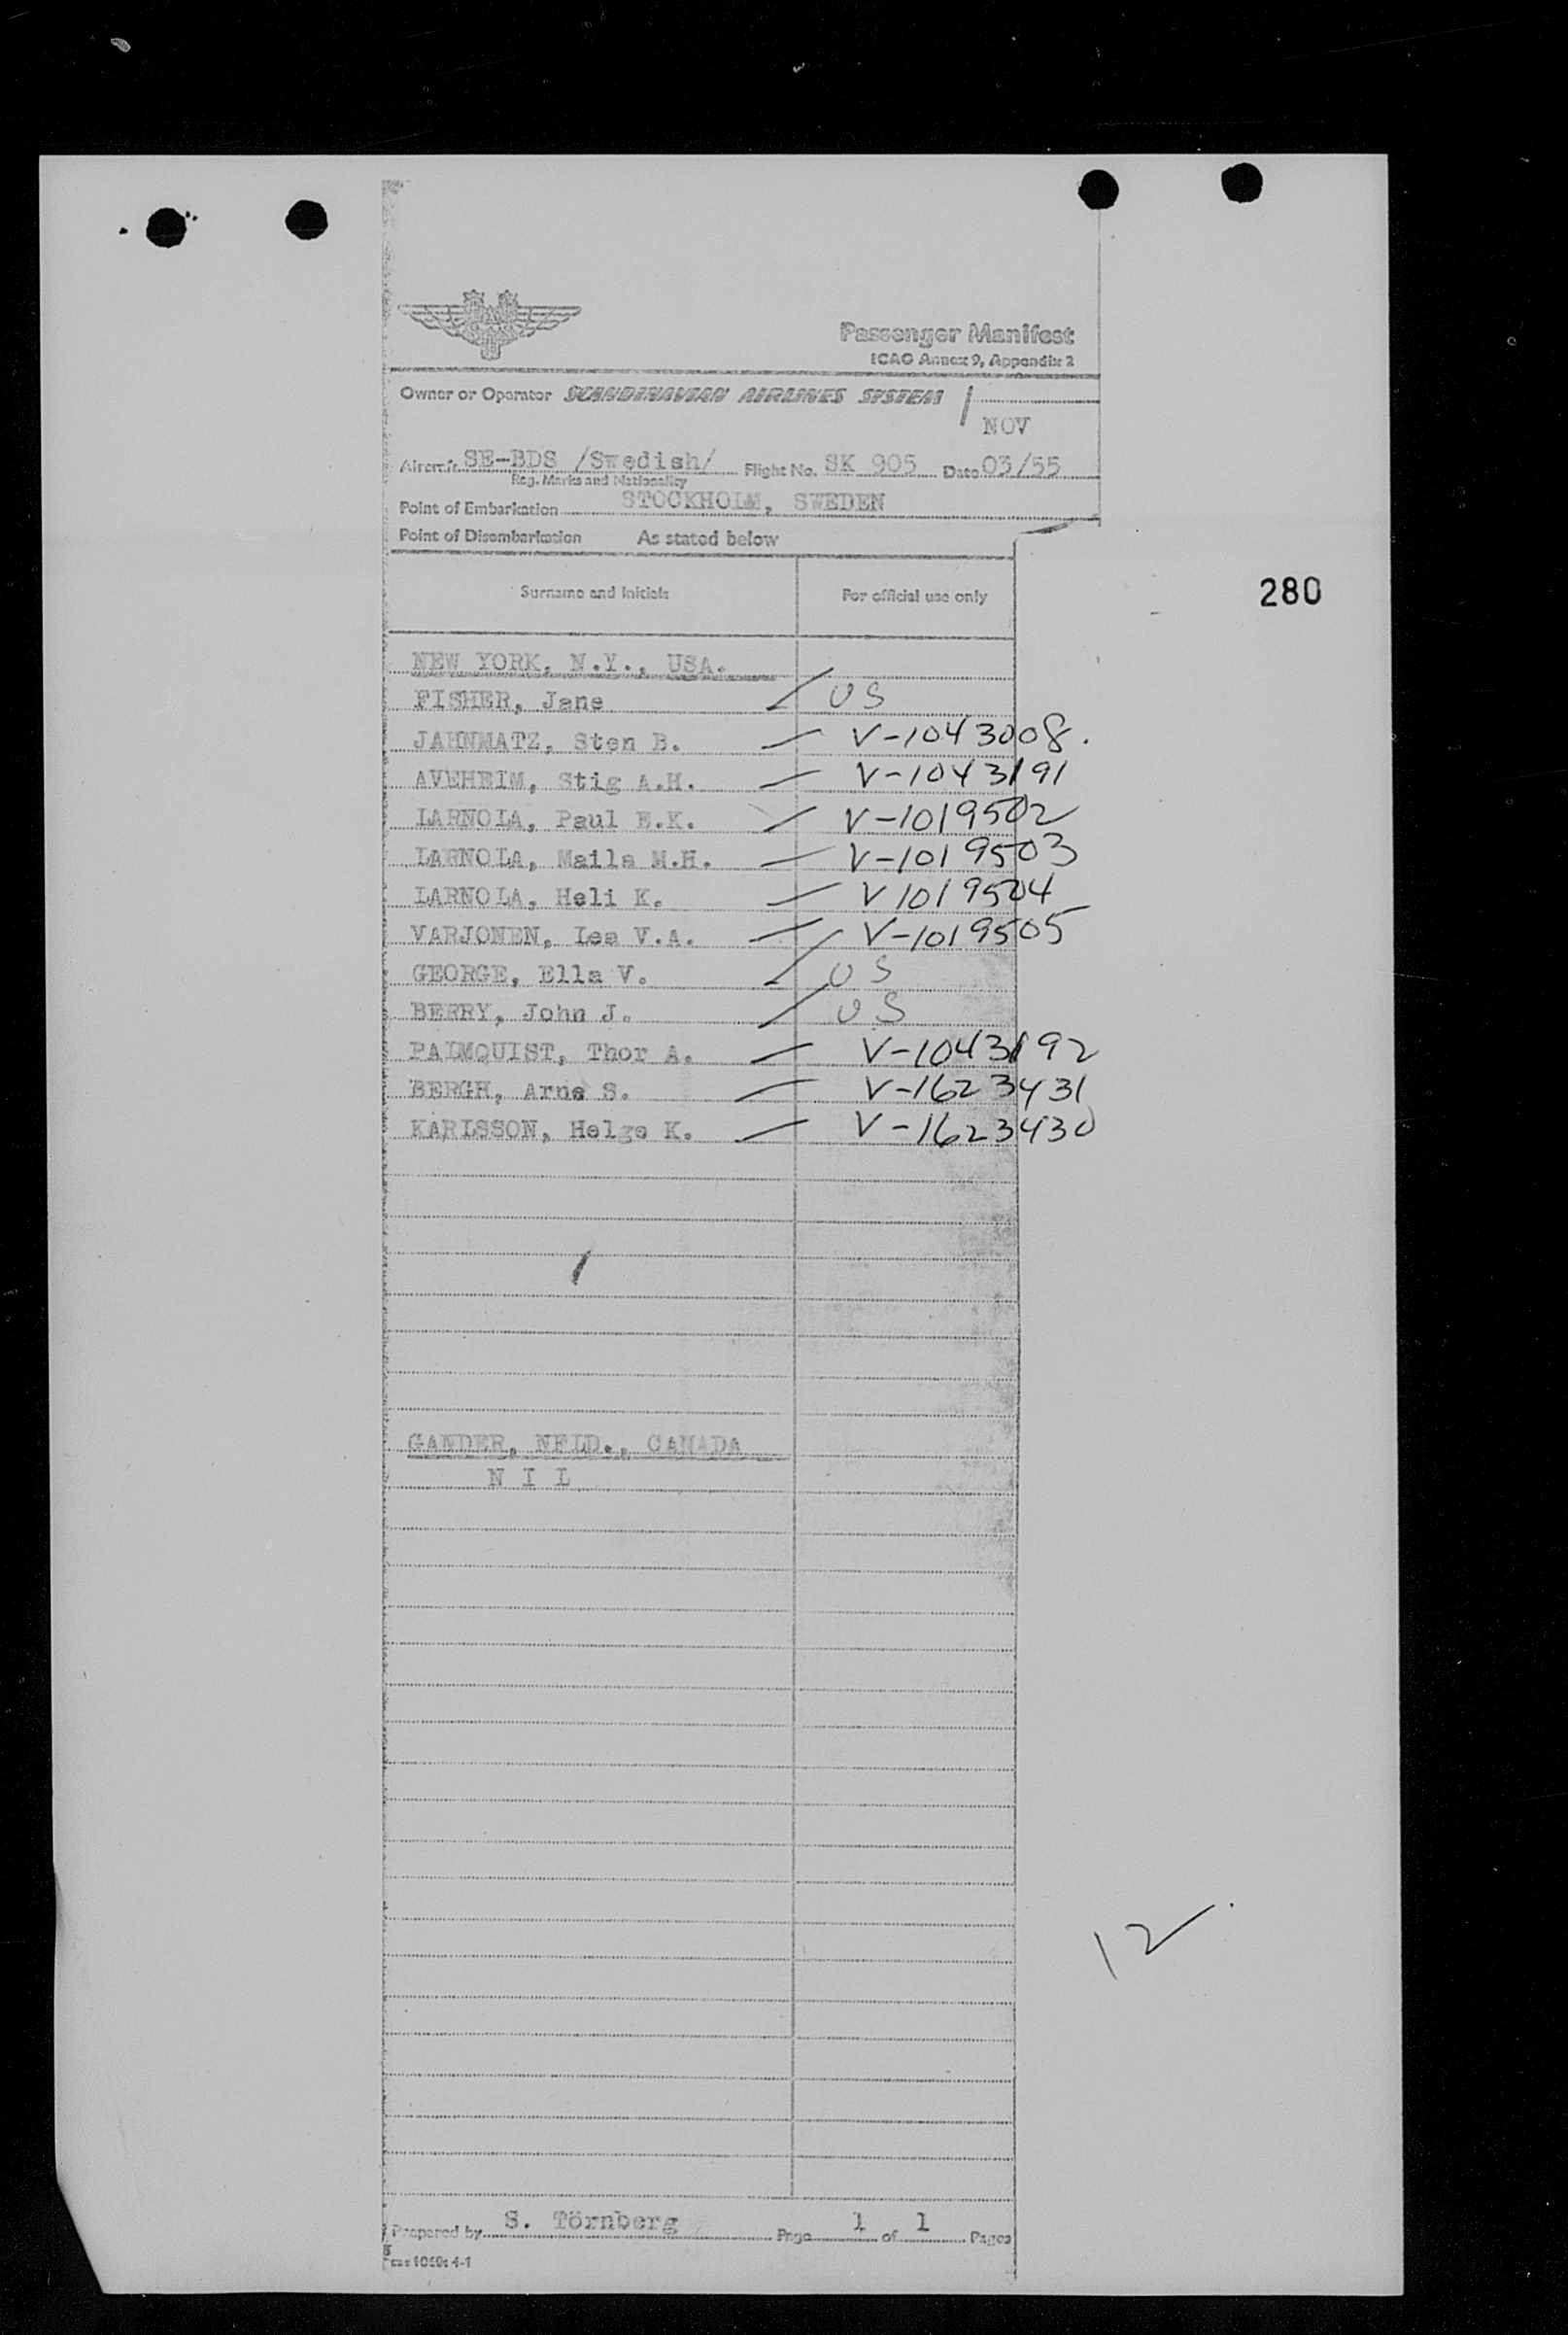 Passenger Manifest
ICAO Annex 9, Appendix 2
Owner or Operator SCANDINAVIAN AIRLINES SYSTEM
NOV
Aircraft SE-BDS /Swedish/ Flight No. SK 905 Date 03/55
Reg. Marks and Nationality
Point of Embarkation STOCKHOLM, SWEDEN
Point of Disembarkation As stated below
Surname and Initials For official use only
280
NEW YORK, N.Y., USA.
FISHER, Jane US
JAHNMATZ, Sten B. V-1043008.
AVEHEIM, Stig A.H. V-1043191
LARNOLA, Paul E.K. V-1019502
LARNOLA, Maila M.H. V-1019503
LARNOLA, Heli K. V 1019504
VARJONEN, Lea V.A. V-1019505
GEORGE, Ella V. US
BERRY, John J. US
PALMQUIST, Thor A. V-1043192
BERGH, Arne S. V-1623431
KARLSSON, Helge K. V-1623430
GANDER, NFLD., CANADA
N I L
12
Prepared by S. Törnberg Page 1 of 1 Pages